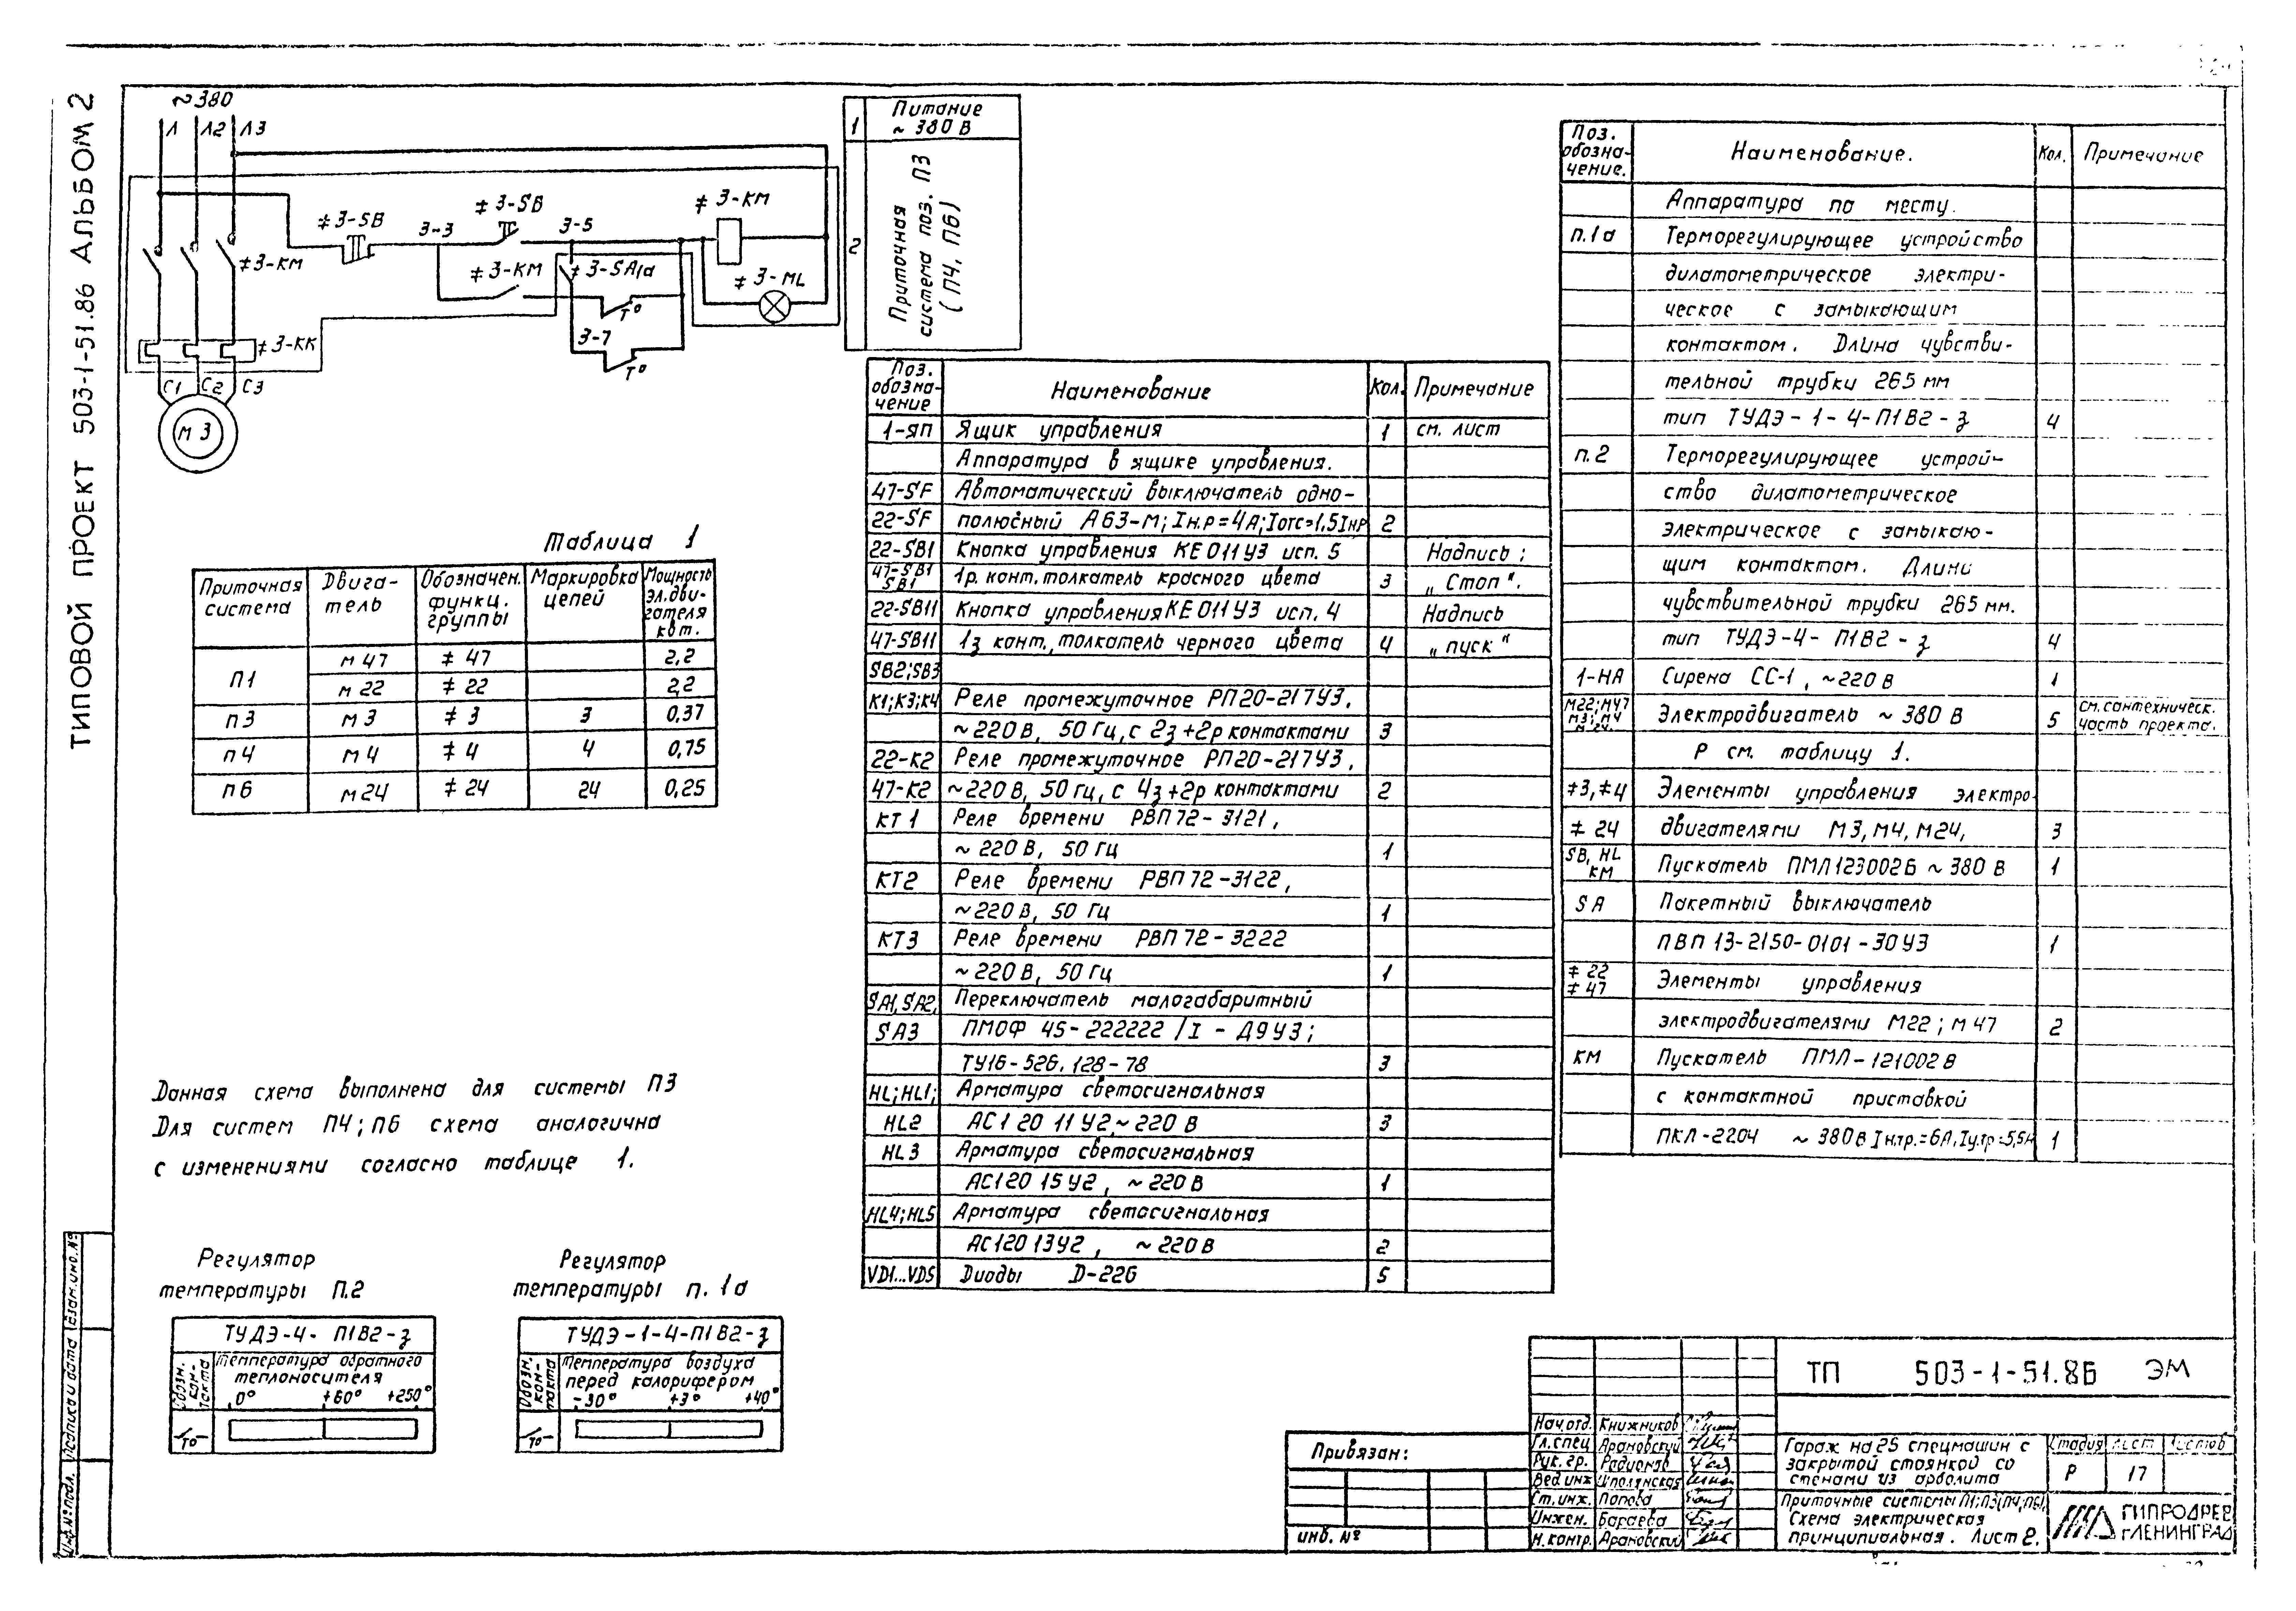 ТИПОВОЙ ПРОЕКТ 503-1-51.86 АЛЬБОМ 2
~380
Л Л2 Л3
≠3-SB
3-3
≠3-SB
3-5
≠3-KM
≠3-KM
≠3-KM
≠3-SA1a
≠3-ML
T°
3-7
T°
≠3-KK
C1 C2 C3
М3
1 Питание ~380 В
2 Приточная система поз. П3 (П4, П6)
Таблица 1
Приточная система | Двига-тель | Обозначен. функц. группы | Маркировка цепей | Мощность эл.дви-гателя квт.
П1 | М47 | ≠47 | | 2,2
М22 | ≠22 | | 2,2
П3 | М3 | ≠3 | 3 | 0,37
П4 | М4 | ≠4 | 4 | 0,75
П6 | М24 | ≠24 | 24 | 0,25
Данная схема выполнена для системы П3
Для систем П4; П6 схема аналогична
с изменениями согласно таблице 1.
Регулятор
температуры П.2
ТУДЭ-4-П1В2-з
Обозн. кон-такта
Температура обратного
теплоносителя
0° +60° +250°
T°
Регулятор
температуры п. 1а
ТУДЭ-1-4-П1В2-з
Обозн. кон-такта
Температура воздуха
перед калорифером
-30° +3° +40°
T°
Поз. обозна-чение | Наименование | Кол. | Примечание
1-ЯП | Ящик управления | 1 | см. лист
Аппаратура в ящике управления.
47-SF | Автоматический выключатель одно-
22-SF | полюсный А63-М; Iн.р=4А; Iотс=1,5Iнр | 2
22-SB1 | Кнопка управления КЕ011У3 исп. 5 | | Надпись:
47-SB1 SB1 | 1р. конт. толкатель красного цвета | 3 | „Стоп“.
22-SB11 | Кнопка управления КЕ011У3 исп. 4 | | Надпись
47-SB11 | 1з конт., толкатель черного цвета | 4 | „пуск“
SB2; SB3
K1; K3; K4 | Реле промежуточное РП20-217У3,
~220 В, 50 Гц, с 2з+2р контактами | 3
22-K2 | Реле промежуточное РП20-217У3,
47-K2 | ~220 В, 50 Гц, с 4з+2р контактами | 2
KT1 | Реле времени РВП72-3121,
~220 В, 50 Гц | 1
KT2 | Реле времени РВП72-3122,
~220 В, 50 Гц | 1
KT3 | Реле времени РВП72-3222
~220 В, 50 Гц | 1
SA1, SA2, | Переключатель малогабаритный
SA3 | ПМОФ 45-222222/I-Д9У3;
ТУ16-526.128-78 | 3
HL; HL1; | Арматура светосигнальная
HL2 | АС12011У2, ~220 В | 3
HL3 | Арматура светосигнальная
АС12015У2, ~220 В | 1
HL4; HL5 | Арматура светосигнальная
АС12013У2, ~220 В | 2
VD1...VD5 | Диоды Д-226 | 5
Поз. обозна-чение. | Наименование. | Кол. | Примечание
Аппаратура по месту.
п.1а | Терморегулирующее устройство
дилатометрическое электри-
ческое с замыкающим
контактом. Длина чувстви-
тельной трубки 265 мм
тип ТУДЭ-1-4-П1В2-з | 4
п.2 | Терморегулирующее устрой-
ство дилатометрическое
электрическое с замыкаю-
щим контактом. Длина
чувствительной трубки 265 мм.
тип ТУДЭ-4-П1В2-з | 4
1-НА | Сирена СС-1, ~220 В | 1
М22; М47 М3; М4 М24. | Электродвигатель ~380 В | 5 | см. сантехническ. часть проекта.
Р см. таблицу 1.
≠3, ≠4 | Элементы управления электро-
≠24 | двигателями М3, М4, М24, | 3
SB, HL KM | Пускатель ПМЛ123002Б ~380 В | 1
SA | Пакетный выключатель
ПВП13-2150-0101-30У3 | 1
≠22 ≠47 | Элементы управления
электродвигателями М22; М47 | 2
KM | Пускатель ПМЛ-121002В
с контактной приставкой
ПКЛ-2204 ~380В Iн.тр.=6А, Iу.тр=5,5А | 1
Привязан:
инв. №
Нач.отд. Книжников
Гл.спец Арановский
Рук.гр. Радионов
Вед.инж Шполянская
Ст.инж. Попова
Инжен. Бараева
Н.контр. Арановский
ТП 503-1-51.86 ЭМ
Гараж на 25 спецмашин с
закрытой стоянкой со
стенами из арболита
Стадия Лист Листов
Р 17
Приточные системы П1; П3 (П4; П6).
Схема электрическая
принципиальная. Лист 2.
ГИПРОДРЕВ
г.ЛЕНИНГРАД
Инв.№подл. Подпись и дата Взам.инв.№